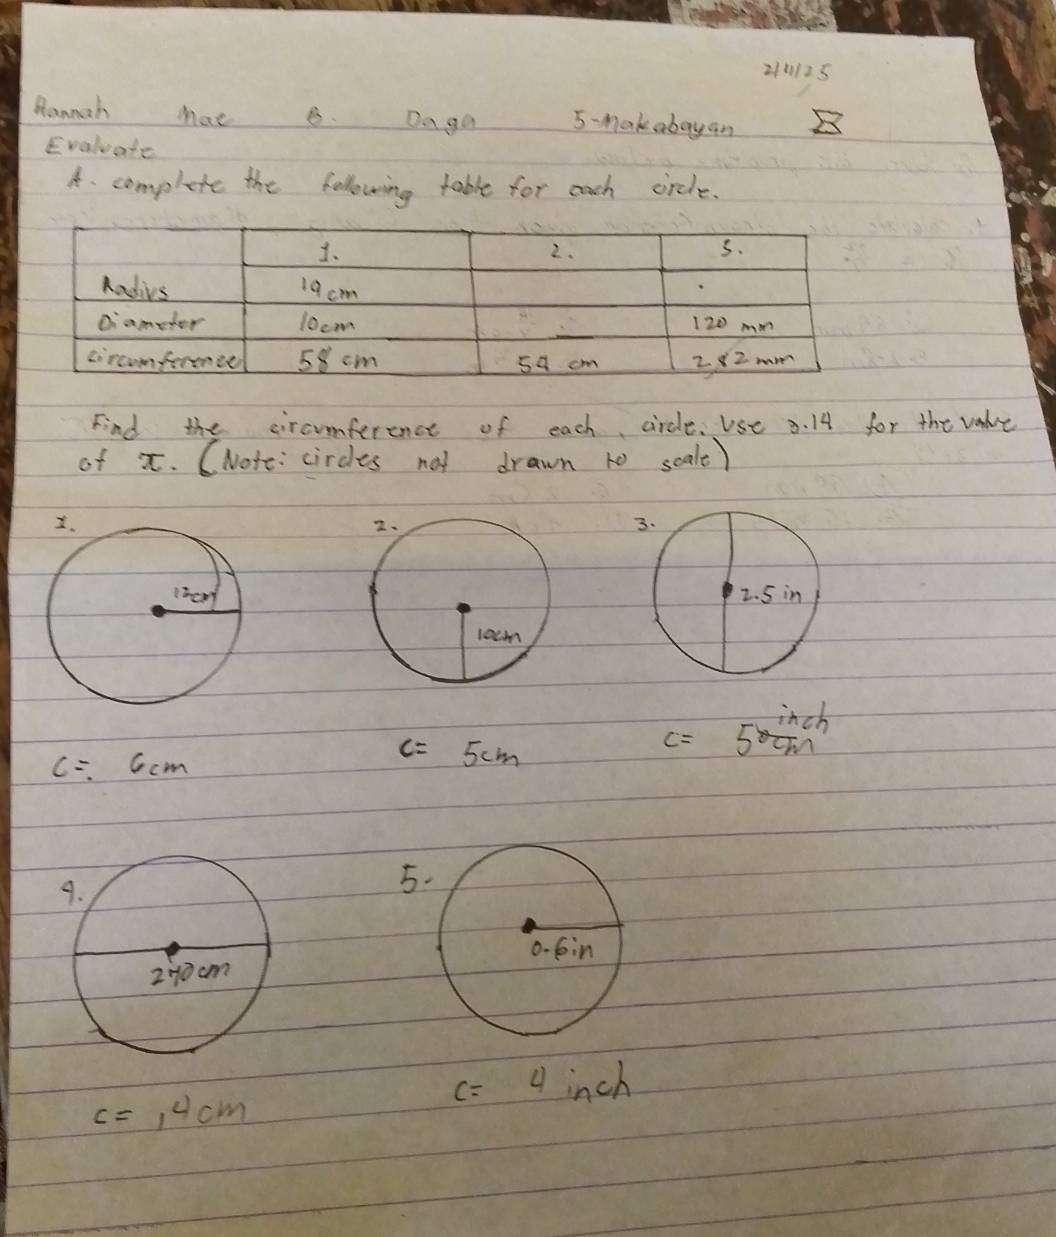 2/4/25
Hannah Mae B. Daga 5-Makabayan
Evaluate
A. complete the following table for each circle.
1. 2. 3.
Radius 19cm
Diameter 10cm 120 mm
circumference 58 cm 54 cm 282mm
Find the circumference of each circle. Use 3.14 for the value
of π. (Note: circles not drawn to scale)
1. 2. 3.
12cm 10cm 2.5 in
inch
C= 6cm C= 5cm C= 50cm
4. 5.
270cm 0.6in
C= ,4cm C= 4 inch